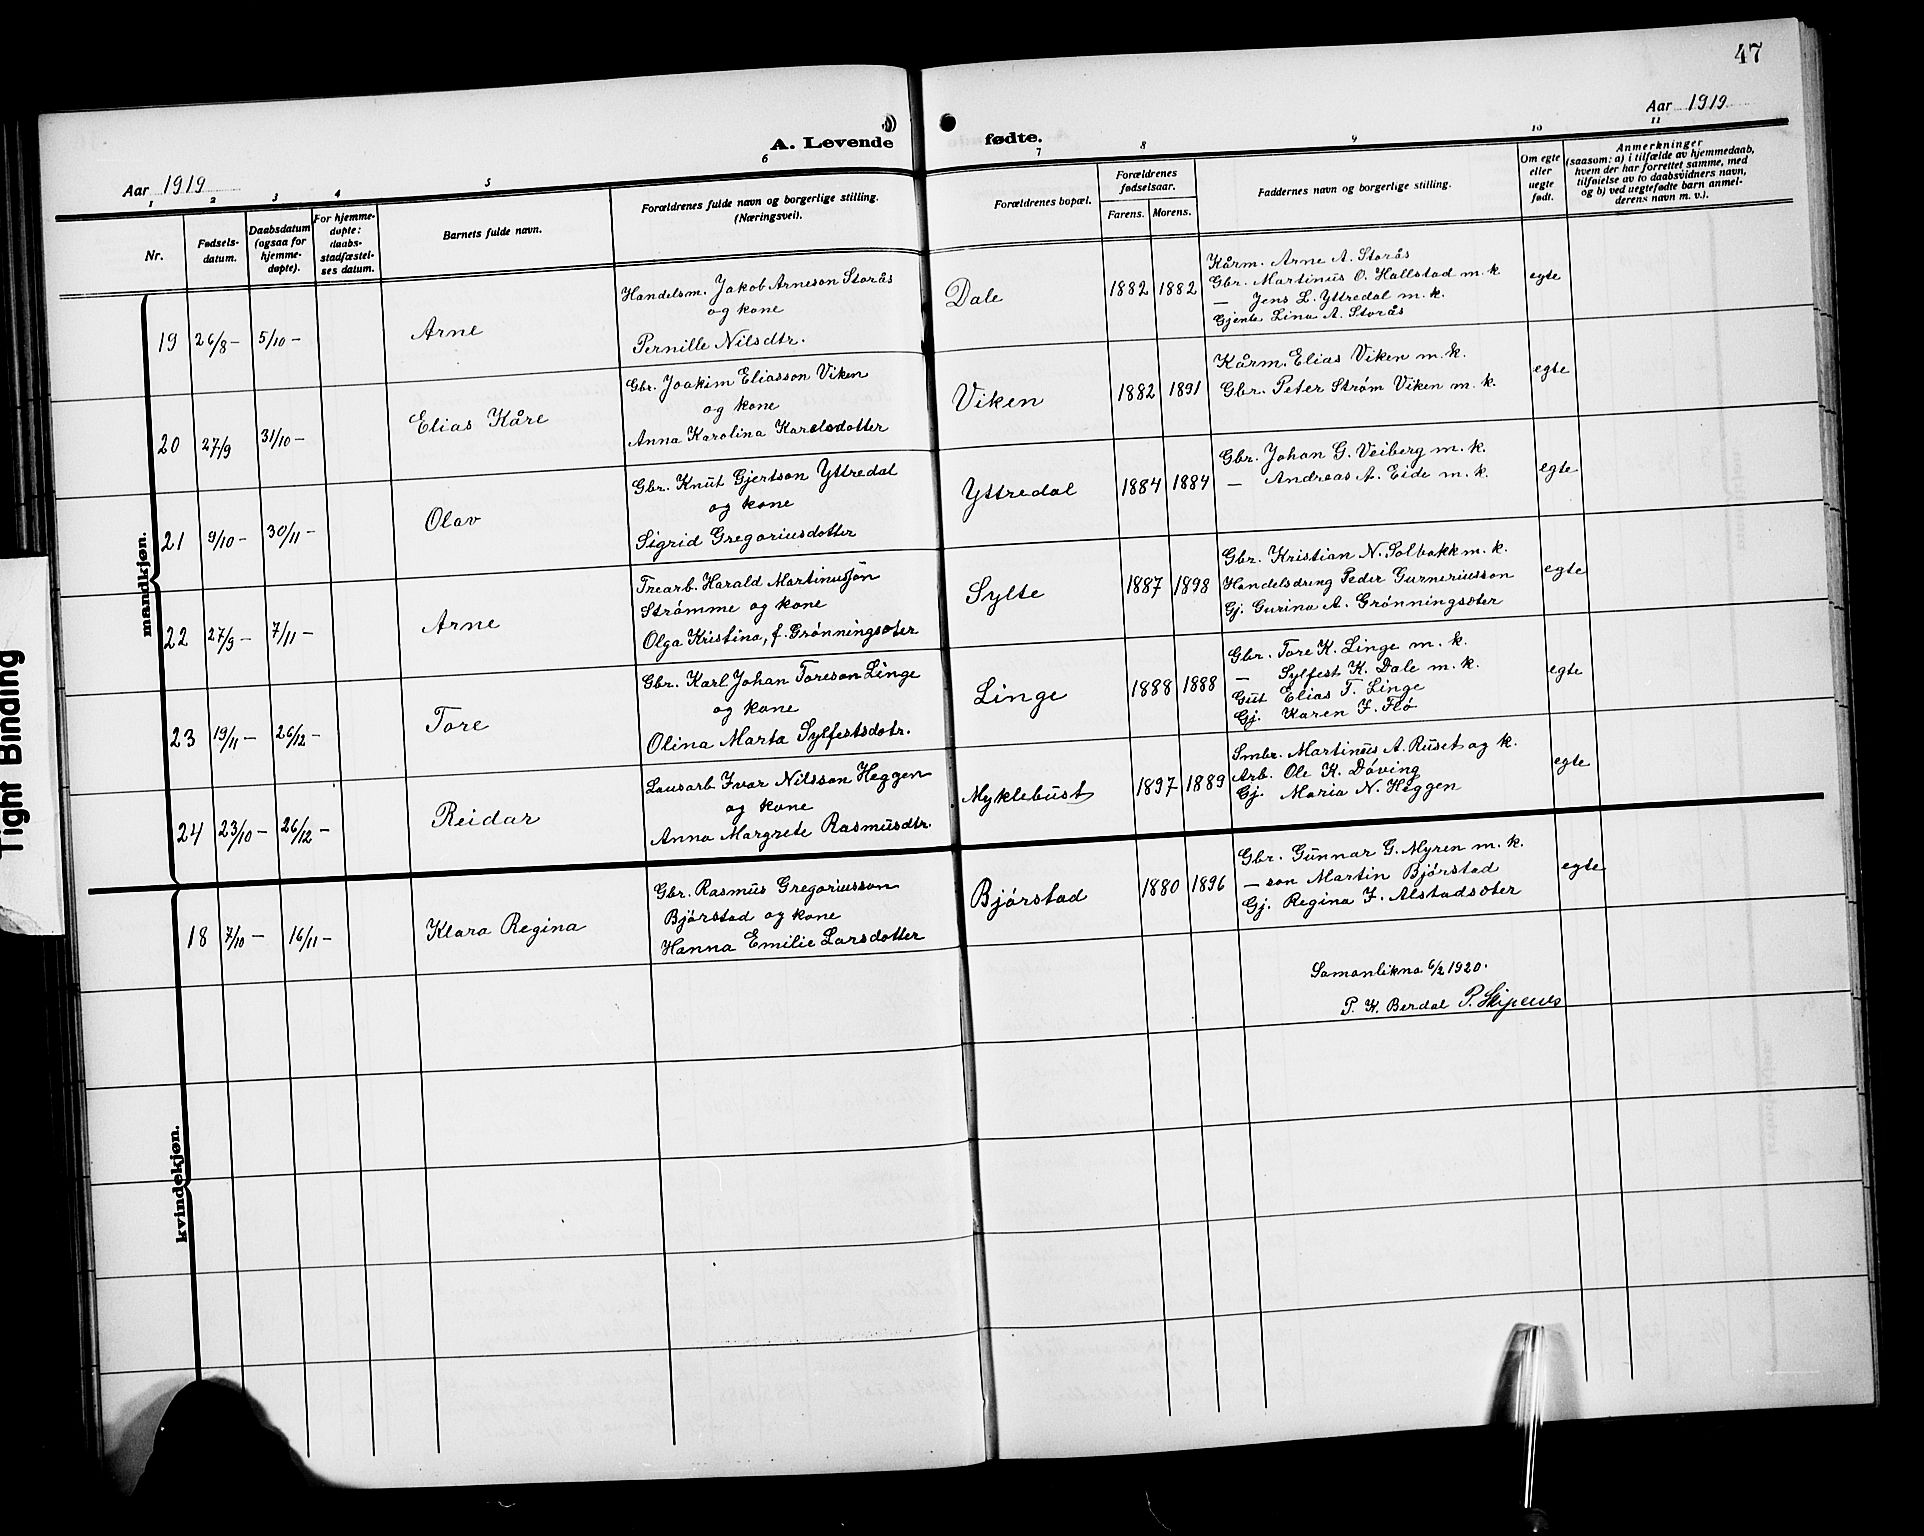 47
Aar 1919
Aar 1919
A. Levende
fødte.
1
2
3
4
5
6
7
8
9
10
11
Nr.
Fødsels-
datum.
Daabsdatum
(ogsaa for
hjemme-
døpte).
For hjemme-
døpte:
daabs-
stadfæstel-
ses datum.
Barnets fulde navn.
Forældrenes fulde navn og borgerlige stilling.
(Næringsvei).
Forældrenes bopæl.
Forældrenes
fødselsaar.
Farens.
Morens.
Faddernes navn og borgerlige stilling.
Om egte
eller
uegte
født.
Anmerkninger
(saasom: a) i tilfælde av hjemmedaab,
hvem der har forrettet samme, med
tilføielse av to daabsvidners navn,
og b) ved uegtefødte barn anmel-
derens navn m. v.).
mandkjøn.
19
26/8 –
5/10 –
Arne
Handelsm. Jakob Arneson Storås
og kone
Pernille Nilsdtr.
Dale
1882
1882
Kårm. Arne A. Storås
Gbr. Martinus O. Hallstad m. k
— Jens L. Yttredal m. k.
Gjente Lina A. Storås
egte
20
27/9
31/10 –
Elias Kåre
Gbr. Joakim Eliasson Viken
og kone
Anna Karolina Karelsdotter
Viken
1882
1891
Kårm. Elias Viken m. k.
Gbr. Peter Strøm Viken m. k.
egte
21
9/10 –
30/11 –
Olav
Gbr. Knut Gjertson Yttredal
og kone
Sigrid Gregoriusdotter
Yttredal
1884
1884
Gbr. Johan G. Veiberg m. k.
— Andreas A. Eide m. k.
egte
22
27/9 –
7/11 –
Arne
Trearb. Harald Martinusson
Strømme og kone
Olga Kristina, f. Grønningsæter
Sylte
1887
1898
Gbr. Kristian N. Solbakk m. k.
Handelsdreng Peder Gurneriusson
Gj. Gurina A. Grønningsæter
egte
23
19/11 –
26/12 –
Tore
Gbr. Karl Johan Toreson Linge
og kone
Olina Marta Sylfestsdotr.
Linge
1888
1888
Gbr. Tore K. Linge m. k.
— Sylfest K. Dale m. k.
Gut Elias T. Linge
Gj. Karen I. Flø
egte
24
23/10 –
26/12 –
Reidar
Lausarb Ivar Nilsson Heggen
og kone
Anna Margrete Rasmusdtr.
Myklebust
1897
1889
Smbr. Martinus A. Ruset og k.
Arb. Ole K. Døving
Gj. Maria N. Heggen
egte
kvindekjøn.
18
7/10 –
16/11 –
Klara Regina
Gbr. Rasmus Gregoriusson
Bjørstad og kone
Hanna Emilie Larsdotter
Bjørstad
1880
1896
Gbr. Gunnar G. Myren m. k.
— son Martin Bjørstad
Gj. Regina I. Alstadsæter
egte
Samanlikna 6/2 1920.
P. K. Berdal
Tight Binding